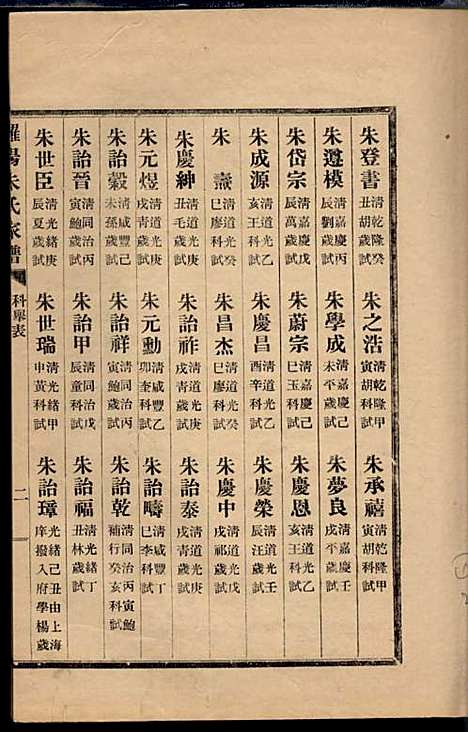 朱登書 清乾隆癸丑胡歲試 朱之浩 清乾隆甲寅胡科試 朱承禧 清乾隆甲寅胡科試
朱遵模 清嘉慶丙辰劉歲試 朱學成 清嘉慶己未平歲試 朱夢良 清嘉慶壬戌平歲試
朱岱宗 清嘉慶戊辰萬歲試 朱蔚宗 清嘉慶己巳玉科試 朱慶恩 清道光乙亥王科試
朱成源 清道光乙亥王科試 朱慶昌 清道光乙酉辛科試 朱慶榮 清道光壬辰汪歲試
朱 清道光癸巳廖科試 朱昌杰 清道光癸巳廖科試 朱慶中 清道光戊戌祁歲試
朱慶紳 清道光辛丑毛歲試 朱詒祚 清道光庚戌青歲試 朱詒泰 清道光庚戌青歲試
朱元煜 清道光庚戌青歲試 朱元勳 清咸豐乙卯奎科試 朱詒疇 清咸豐丁巳李科試
朱詒穀 清咸豐己未孫歲試 朱詒祥 清同治丙寅鮑歲試 朱詒乾 清同治丙寅鮑補行癸亥科試
朱詒晉 清同治丙寅鮑歲試 朱詒甲 清同治戊辰童歲試 朱詒福 清光緒丁丑林歲試
朱世臣 清光緒庚辰夏歲試 朱世瑞 清光緒甲申黃科試 朱詒璋 光緒己丑由上海庠撥入府學楊歲
陽朱氏家譜 科舉表 二